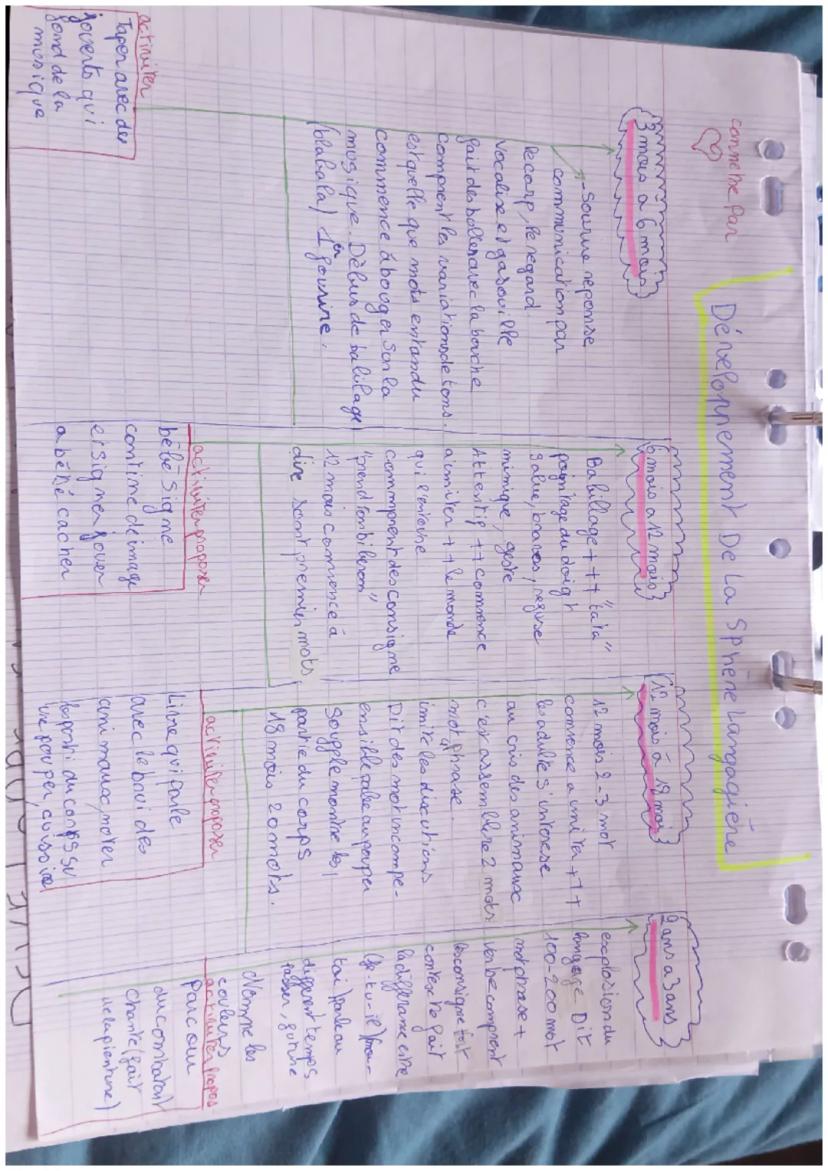 connetre par
Dévelonnement De La Sphère Langagière
3 mois a 6 mois
- Sourire reponse
communication par
le corp, le regard
vocalise et gasouille
fait des bulles avec la bouche
comprent les variations de tons.
est quelle que mots entandu
commence à bouger sur la
musique. Début de balilage
(blabala) 1er fourire.
activiter
Taper avec des
jouents qui
fond de la
musique
6 mois a 12 mois
Babillage +++ "tata"
pointage du doigt
salue, bravos, refuse
mimique, geste
Attentif ++ commence
a imiter ++ le monde
qui l'entoure
commprent des consigne
"prend ton biberon"
12 mois commence à
dire sont premier mots
activiter proposer
bébé signe
contine de image
et signer jouer
a bébé cacher
12 mois à 18 mois
12 mois 2-3 mot
commence a imiter +++
les adulte s'interese
au cris des animaux
c'est assemblere 2 mots
mot phrase
imite les discutions
Dit des mot incompe-
ensible
souffle montre les
partie du corps
18 mois 20 mots.
activiter proposer
Livre qui parle
avec le bruit des
animaux, montrer
les parti du corps su
une pouper,
2 ans a 3 ans
explosion du
langage Dit
100-200 mot
mot phrase +
verbe comprent
les consigne
contexte fait
la difference entre
(je-tu-il) (moi-
toi)
different temps
passer, future
Nomme les
couleurs
activiter propos
parcour
du combatant
chante (fait
de la pienture)